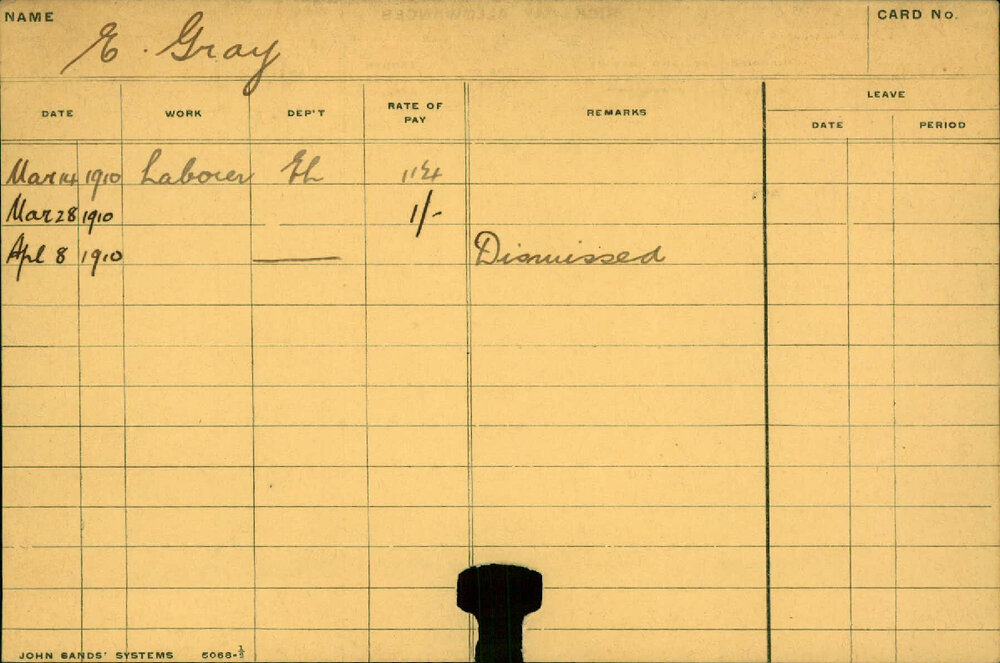 NAME
E. Gray
CARD No.
DATE WORK DEP'T RATE OF PAY REMARKS LEAVE
DATE PERIOD
Mar 14 1910 Laborer
Mar 28 1910 1/-
Apl 8 1910 Dismissed
JOHN SANDS' SYSTEMS 5068-½